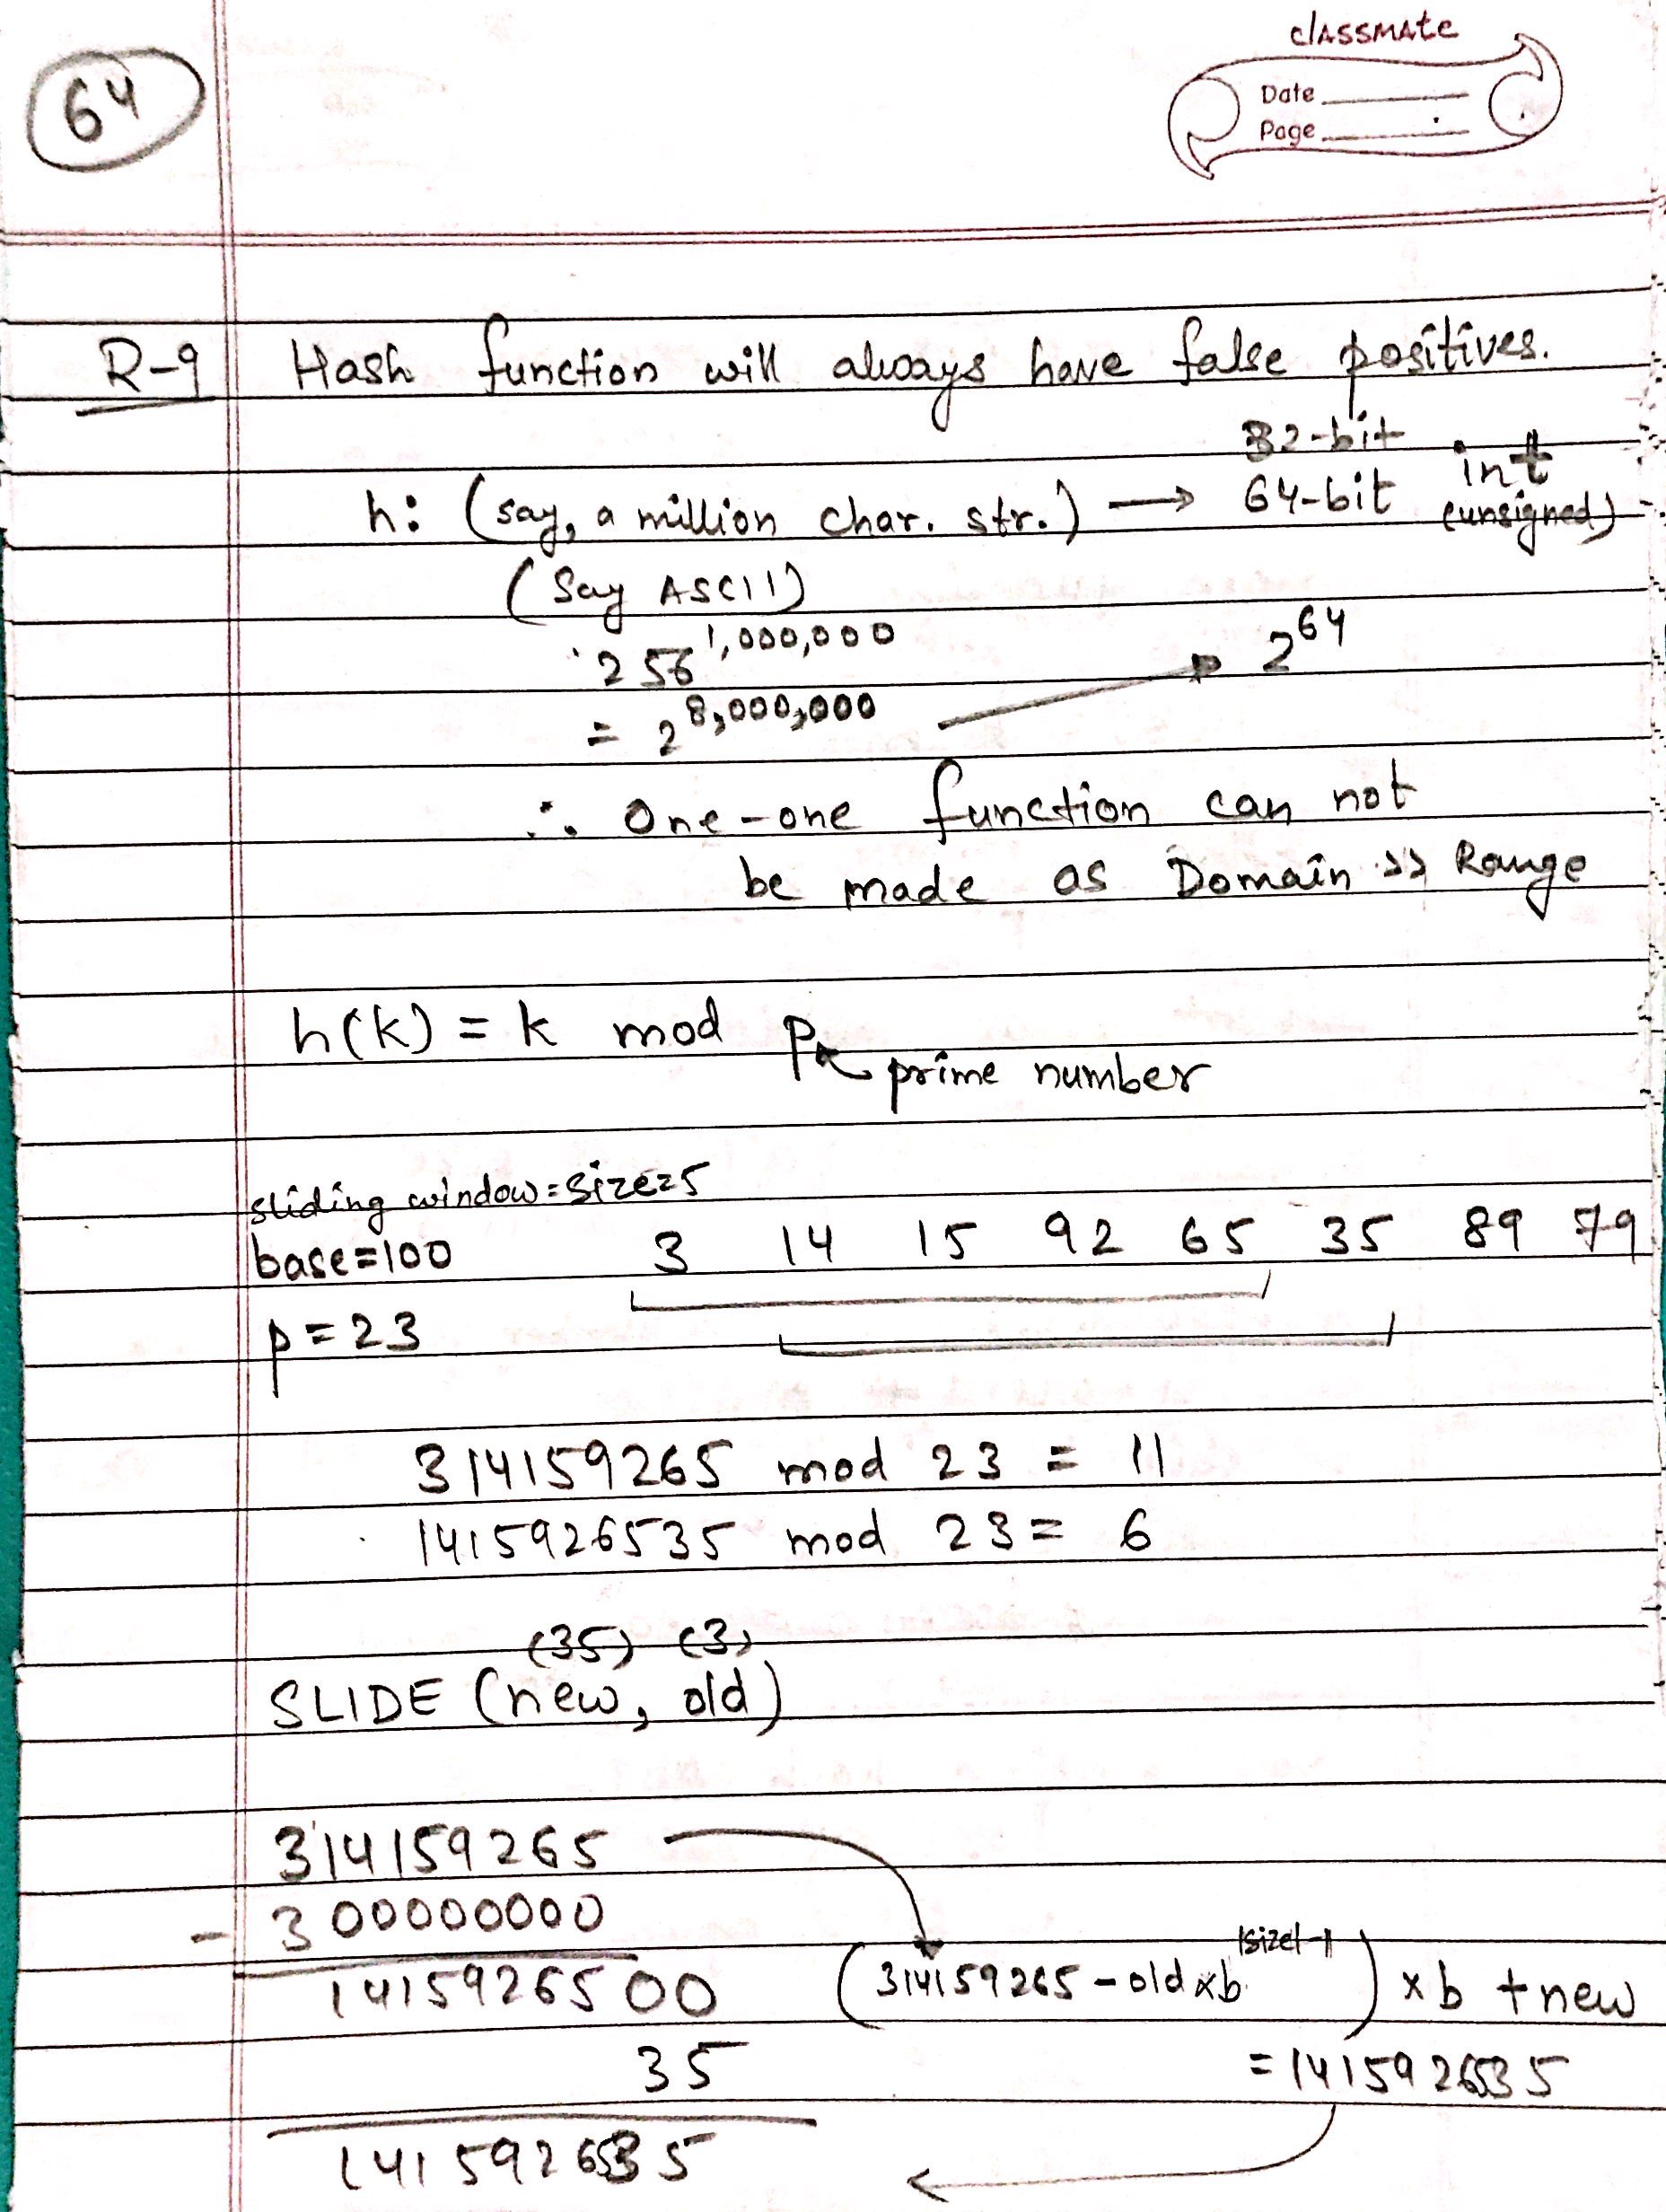 classmate
Date
Page
64
R-9 Hash function will always have false positives.
32-bit
h: (say, a million char. str.) → 64-bit int (unsigned)
(Say ASCII)
256^1,000,000 → 2^64
= 2^8,000,000
∴ One-one function can not
be made as Domain >> Range
h(k) = k mod p
prime number
sliding window = size=5
base=100 3 14 15 92 65 35 89 79
p=23
314159265 mod 23 = 11
1415926535 mod 23 = 6
(35) (3)
SLIDE (new, old)
314159265
- 300000000
1415926500 (314159265 - old×b^|size|-1) × b + new
35 = 1415926535
1415926535